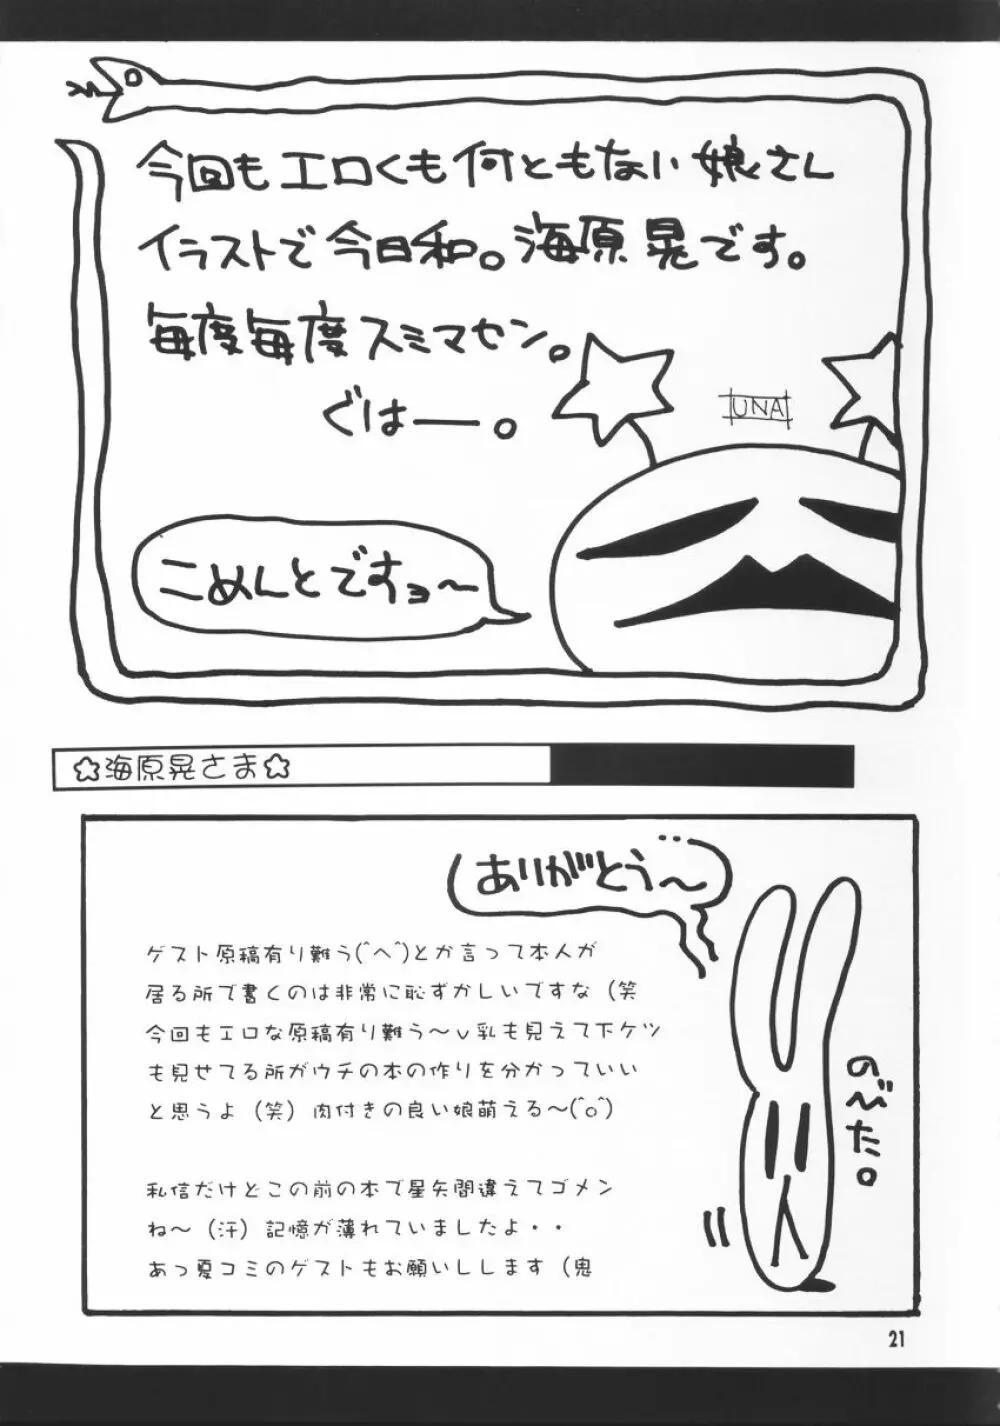 今回もエロくも何ともない娘さん
イラストで今日和。海原晃です。
毎度毎度スミマセン。
ぐはー。
UNA
こめんとですョ〜
☆海原晃さま☆
ありがとう〜
ゲスト原稿有り難う(^ヘ^)とか言って本人が
居る所で書くのは非常に恥ずかしいですな（笑
今回もエロな原稿有り難う〜v乳も見えて下ケツ
も見せてる所がウチの本の作りを分かっていい
と思うよ（笑）肉付きの良い娘萌える〜(^o^)
のびた。
私信だけどこの前の本で星矢間違えてゴメン
ね〜（汗）記憶が薄れていましたよ・・
あっ夏コミのゲストもお願いしします（鬼
21